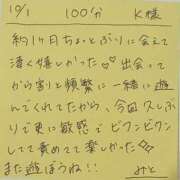 10/1 100分 K様
約1ヶ月ちょっとぶりに会えて
凄く嬉しかった♡♡出会って
から割と頻繁に一緒に遊
んでくれてたから、今回久しぶ
りで更に敏感でビクンビクン
してて責めてて楽しかった
また遊ぼうね!! みと